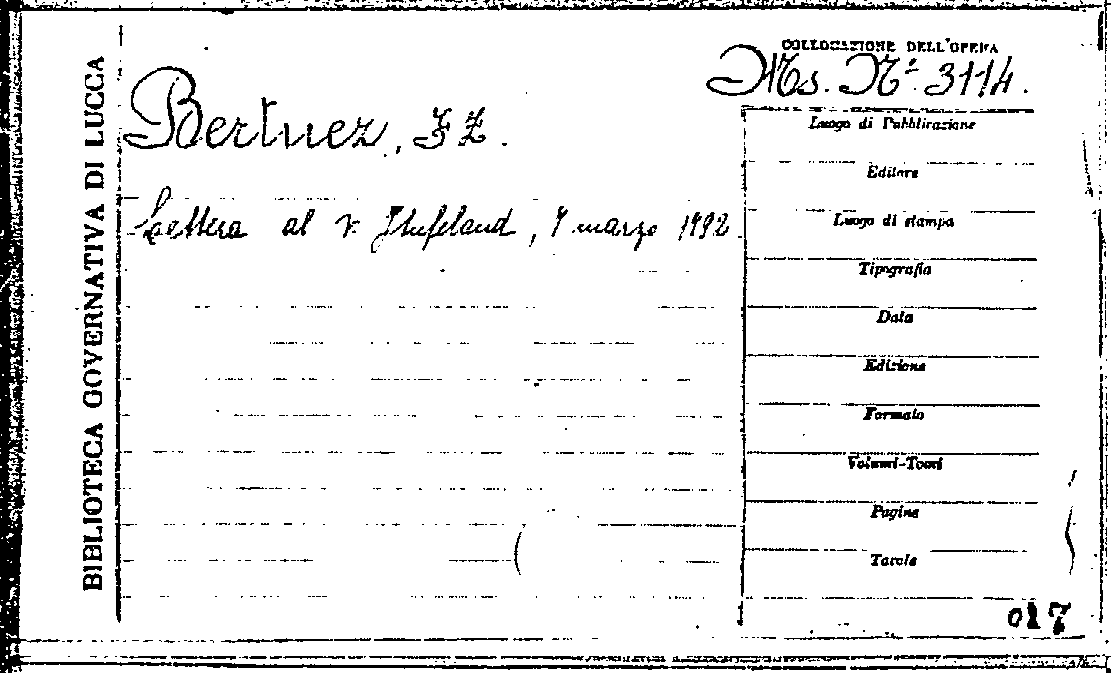 BIBLIOTECA GOVERNATIVA DI LUCCA
COLLOCAZIONE DELL'OPERA
Ms. Nº 3114.
Bertuez,
Lettera al v. Hufeland, 7 marzo 1792
Luogo di Pubblicazione
Editore
Luogo di stampa
Tipografia
Data
Edizione
Formato
Volumi-Tomi
Pagine
Tavole
017